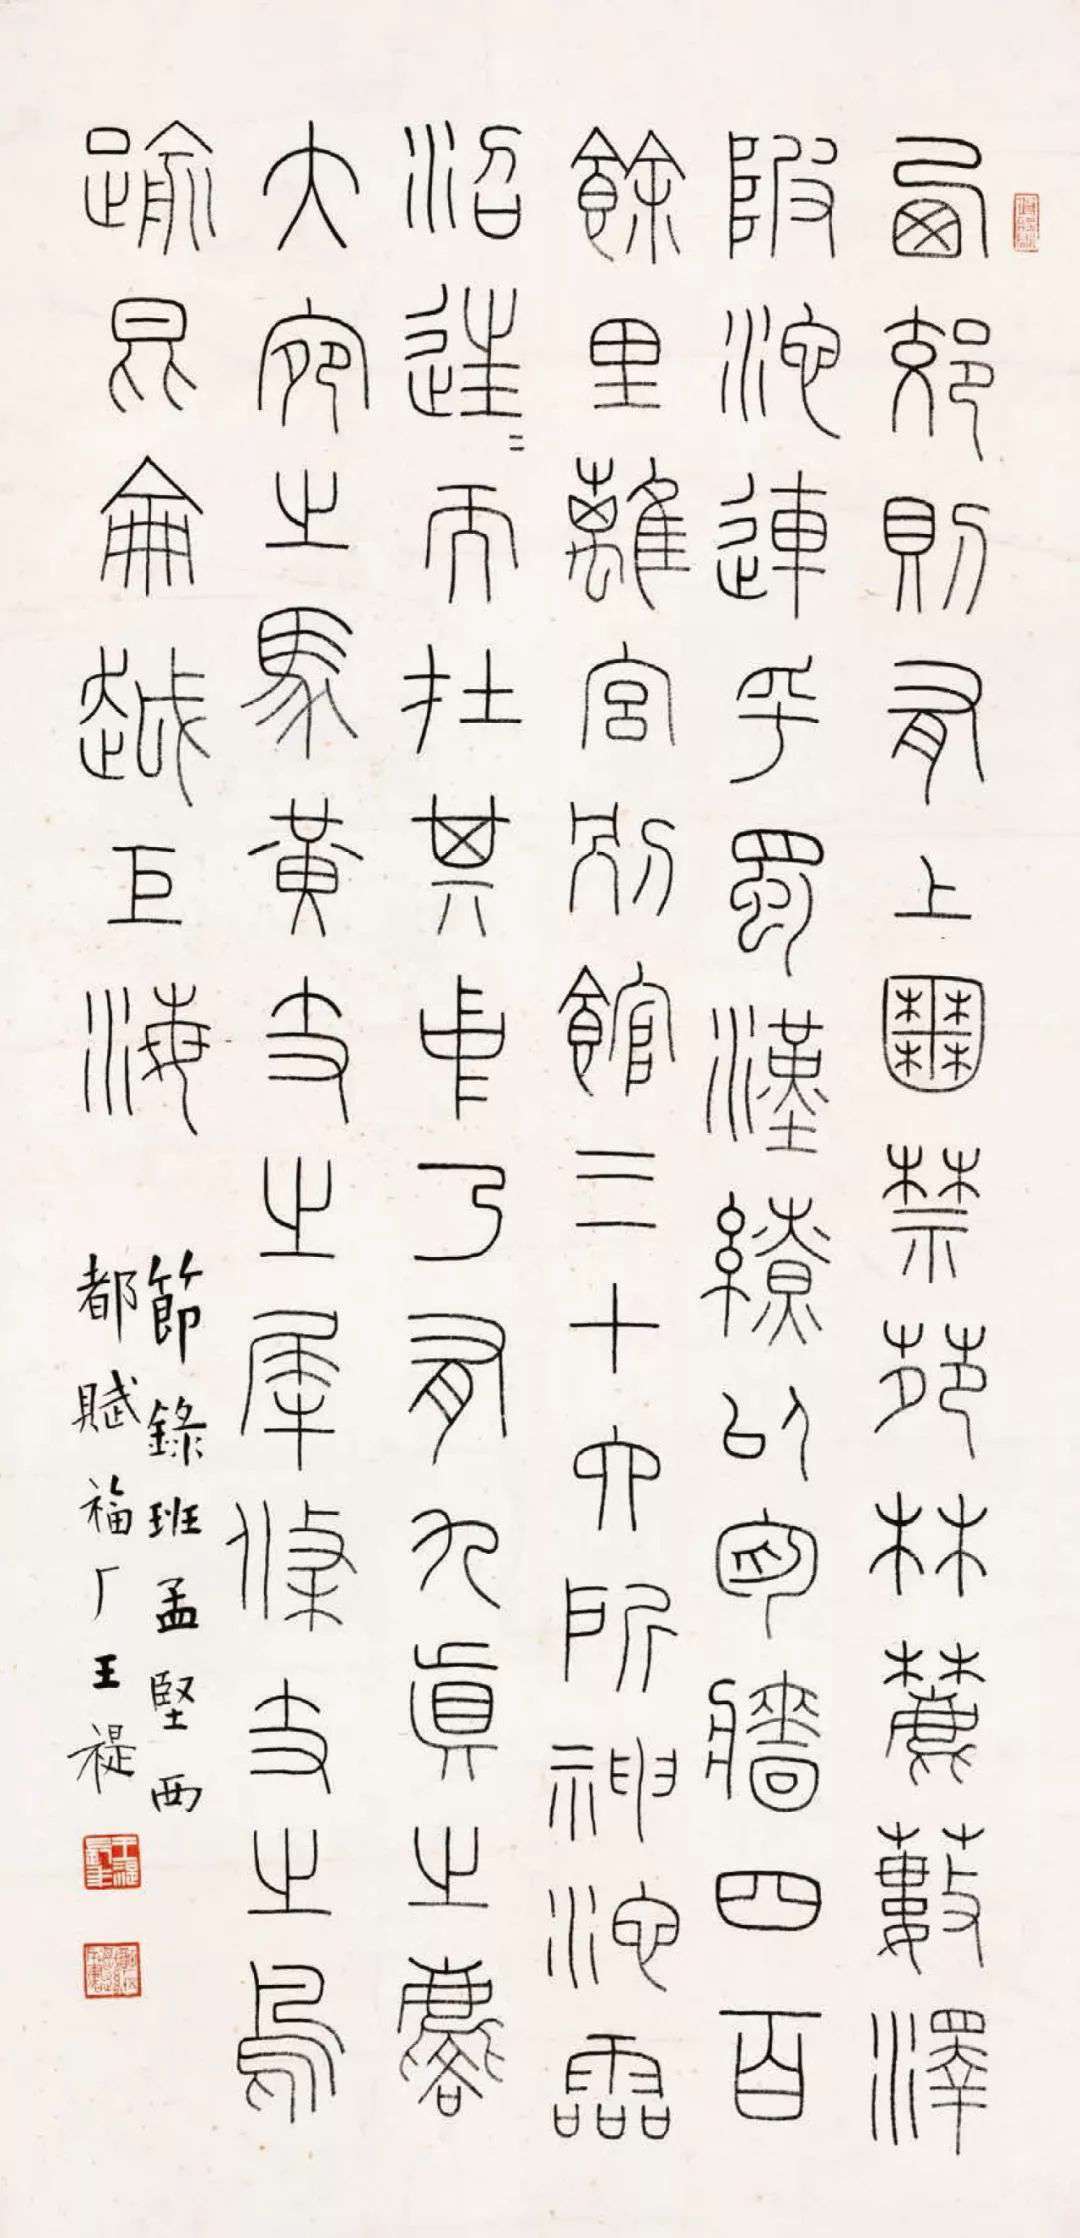 西郊則有上囿禁苑林麓藪澤
陂池連乎蜀漢繚以周牆四百
餘里離宮別館三十六所神池霝
沼往〻而在其中乃有九真之麐
大宛之馬黃支之犀條支之鳥
踰昆侖越巨海
節錄班孟堅西
都賦福厂王禔